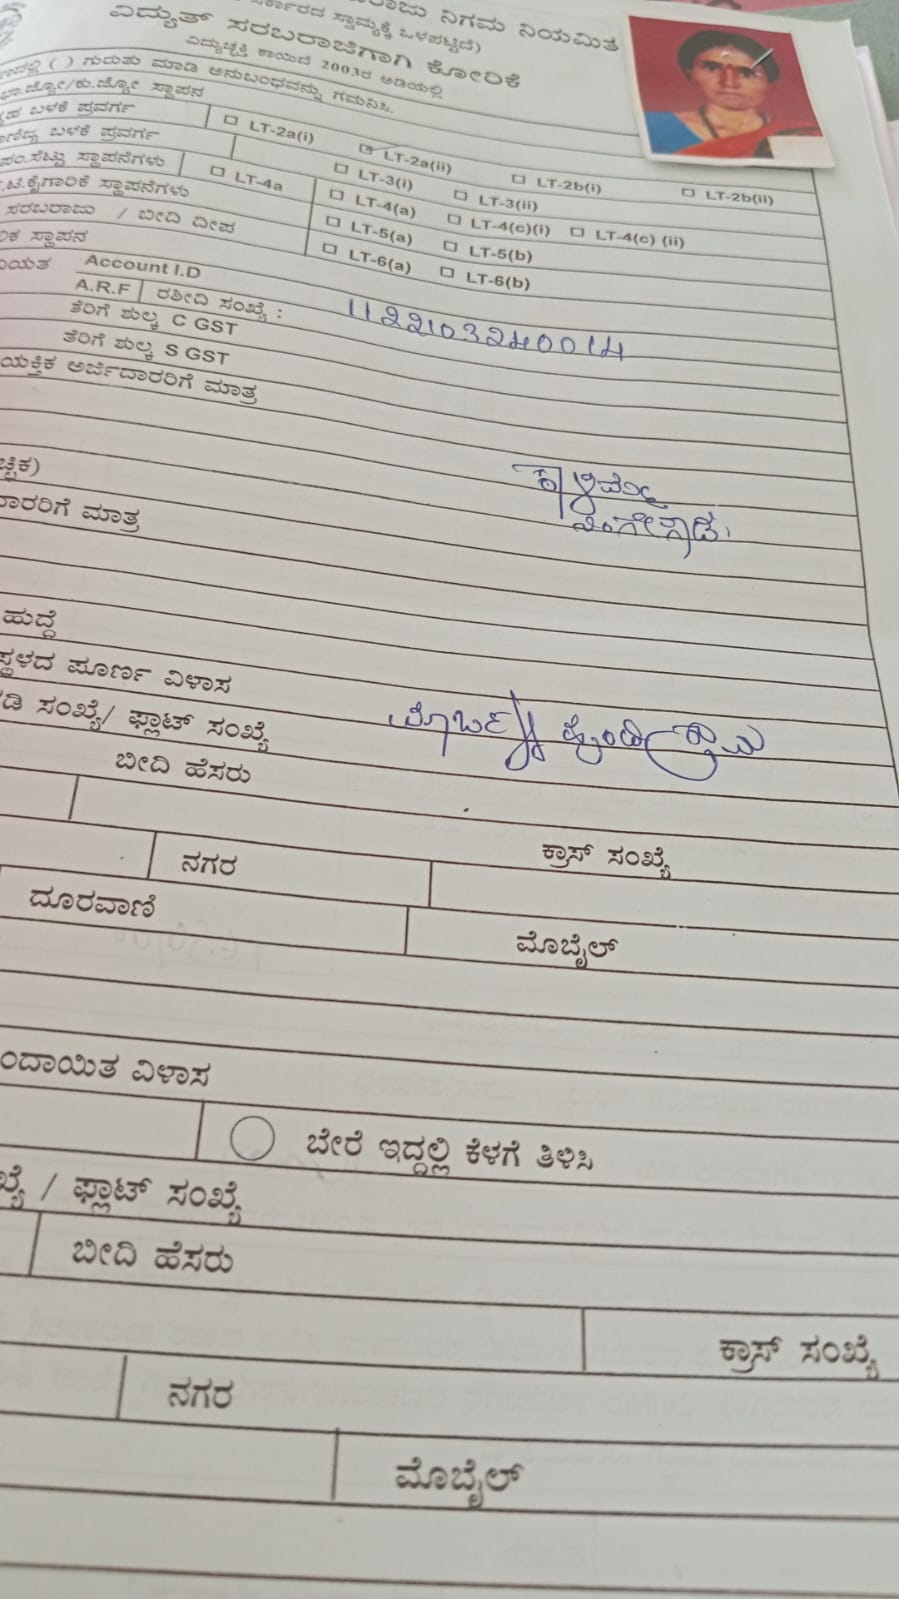 ನಿಗಮ ನಿಯಮಿತ
ಸರ್ಕಾರದ ಸ್ವಾಮ್ಯಕ್ಕೆ ಒಳಪಟ್ಟಿದೆ)
ವಿದ್ಯುತ್ ಸರಬರಾಜಿಗಾಗಿ ಕೋರಿಕೆ
ವಿದ್ಯುಚ್ಛಕ್ತಿ ಕಾಯಿದೆ 2003ರ ಅಡಿಯಲ್ಲಿ
( ) ಗುರುತು ಮಾಡಿ ಅನುಬಂಧವನ್ನು ಗಮನಿಸಿ.
ಭಾ.ಜ್ಯೋ/ಕು.ಜ್ಯೋ ಸ್ಥಾಪನ
ಬಳಕೆ ಪ್ರವರ್ಗ ☐ LT-2a(i) ☑ LT-2a(ii) ☐ LT-2b(i) ☐ LT-2b(ii)
ಬಳಕೆ ಪ್ರವರ್ಗ ☐ LT-3(i) ☐ LT-3(ii)
ಪಂ.ಸೆಟ್ಟು ಸ್ಥಾಪನೆಗಳು ☐ LT-4a ☐ LT-4(a) ☐ LT-4(c)(i) ☐ LT-4(c) (ii)
ಕೈಗಾರಿಕೆ ಸ್ಥಾಪನೆಗಳು ☐ LT-5(a) ☐ LT-5(b)
ಸರಬರಾಜು / ಬೀದಿ ದೀಪ ☐ LT-6(a) ☐ LT-6(b)
ಸ್ಥಾಪನ
Account I.D
A.R.F ರಶೀದಿ ಸಂಖ್ಯೆ : 11221032400014
ತೆರಿಗೆ ಶುಲ್ಕ C GST
ತೆರಿಗೆ ಶುಲ್ಕ S GST
ಯಕ್ತಿಕ ಅರ್ಜಿದಾರರಿಗೆ ಮಾತ್ರ
ಚ್ಛಿಕ)
ದಾರರಿಗೆ ಮಾತ್ರ
ಹುದ್ದೆ
ಸ್ಥಳದ ಪೂರ್ಣ ವಿಳಾಸ
ಡಿ ಸಂಖ್ಯೆ/ ಫ್ಲಾಟ್ ಸಂಖ್ಯೆ
ಬೀದಿ ಹೆಸರು
ಕ್ರಾಸ್ ಸಂಖ್ಯೆ
ನಗರ
ದೂರವಾಣಿ
ಮೊಬೈಲ್
ಂದಾಯಿತ ವಿಳಾಸ
ಬೇರೆ ಇದ್ದಲ್ಲಿ ಕೆಳಗೆ ತಿಳಿಸಿ
ಖ್ಯೆ / ಫ್ಲಾಟ್ ಸಂಖ್ಯೆ
ಬೀದಿ ಹೆಸರು
ಕ್ರಾಸ್ ಸಂಖ್ಯೆ
ನಗರ
ಮೊಬೈಲ್